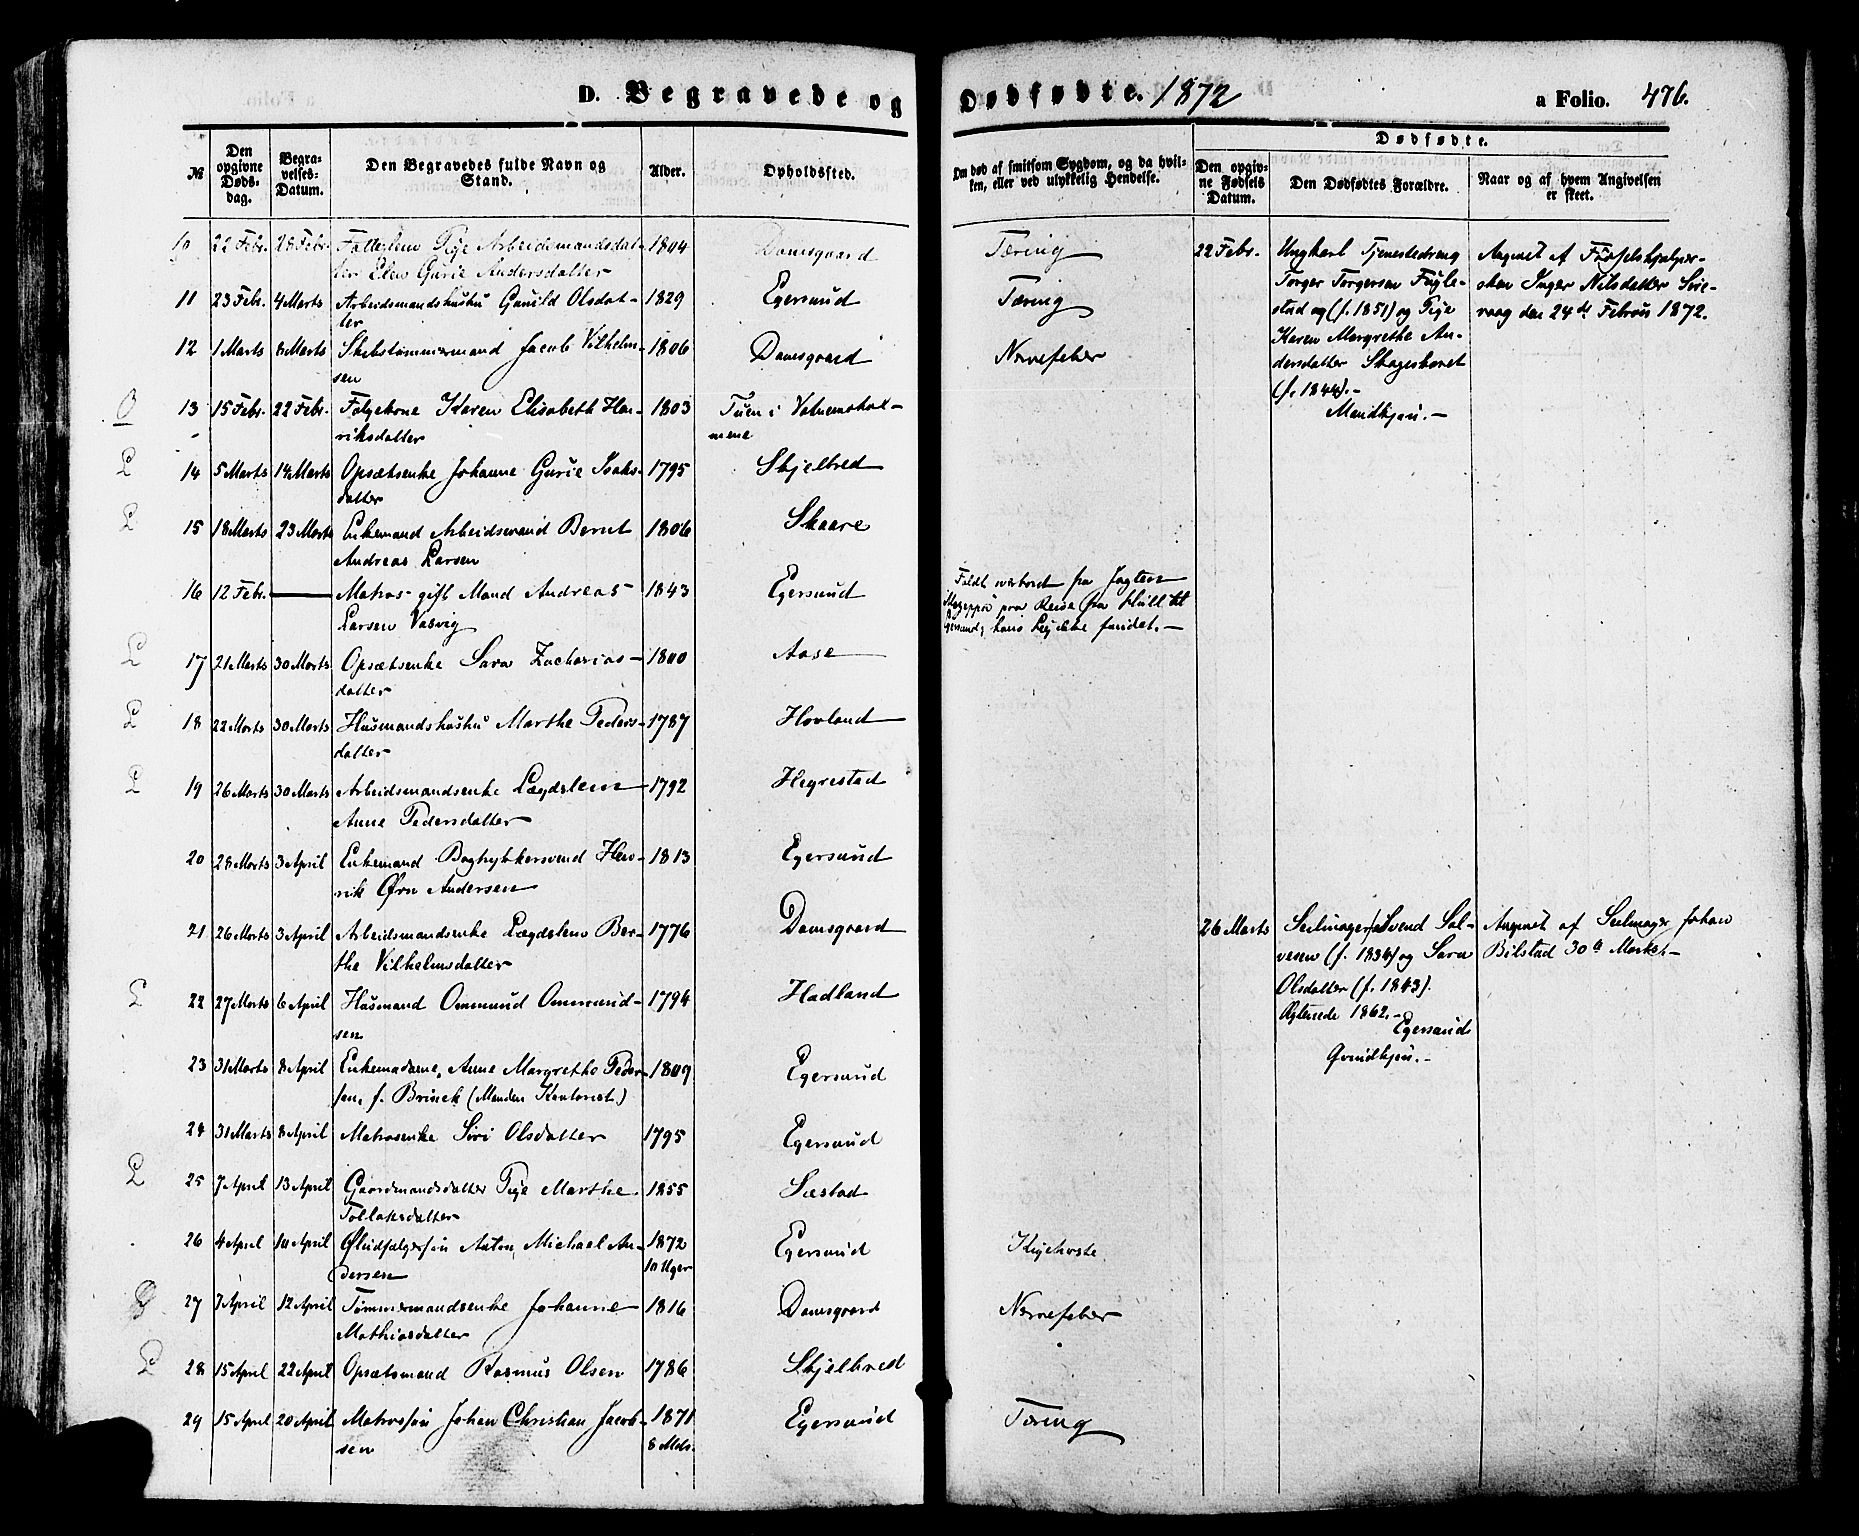 D. Begravede og Dødfødte. 1872 a Folio. 476.
№
Den opgivne Døds-dag.
Begra-velses-Datum.
Den Begravedes fulde Navn og Stand.
Alder.
Opholdssted.
Om død af smitsom Sygdom, og da hvil-
ken, eller ved ulykkelig Hendelse.
Dødfødte.
Den opgiv-
ne Fødsels
Datum.
Den Dødfødtes Forældre.
Naar og af hvem Angivelsen
er skeet.
10 22 Febr. 28 Febr. Fattiglem Pige Arbeidsmandsdat- 1804 Damsgaard Tæring
ter Elen Gurie Andersdatter
11 23 Febr. 4 Marts Arbeidsmandshustru Gunild Olsdat- 1829 Egersund Tæring
ter
12 1 Marts 8 Marts Skibstømmermand Jacob Vilhelm- 1806 Damsgaard Nervefeber
sen
O 13 15 Febr. 22 Febr. Følgekone Karen Elisabeth Hen- 1803 Tuen i Vatnemshol-
riksdatter mene
L 14 5 Marts 14 Marts Opsætsenke Johanne Gurie Isaks- 1795 Skjelbred
datter
L 15 18 Marts 23 Marts Enkemand Arbeidsmand Bernt 1806 Skaare
Andreas Larsen
16 12 Febr. — Matros gift Mand Andreas 1843 Egersund
Larsen Vasvig
Faldt overbord fra Jagten
paa Reise fra Hull til
Egersund, hans Liig ikke fundet. —
L 17 21 Marts 30 Marts Opsætsenke Sara Zacharias- 1800 Aase
datter
L 18 22 Marts 30 Marts Husmandshustru Marthe Peders- 1787 Hovland
datter
L 19 26 Marts 30 Marts Arbeidsmandsenke Lægdslem 1792 Hegrestad
Anne Pedersdatter
20 28 Marts 3 April Enkemand Bogtrykkersvend Hen- 1813 Egersund
rik Ørn Andersen
21 26 Marts 3 April Arbeidsmandsenke Lægdslem Ber- 1776 Damsgaard
the Vilhelmsdatter
L 22 27 Marts 6 April Husmand Ommund Ommund- 1794 Hadland
sen
23 31 Marts 8 April Enkemadame, Anne Margrethe Peder- 1809 Egersund
sen, f. Brinck (Manden Kontorist)
24 31 Marts 8 April Matrosenke Siri Olsdatter 1795 Egersund
L 25 7 April 13 April Gaardmandsdatter Pige Marthe 1855 Sæstad
Tollaksdatter
26 4 April 10 April Anton Michael An- 1872 Egersund Kighoste
dersen 10 Uger
27 7 April 12 April Tømmermandsenke Johanne 1816 Damsgaard Nervefeber
Mathiasdatter
L 28 15 April 22 April Opsætsmand Rasmus Olsen 1786 Skjelbred
29 15 April 20 April Matrossøn Johan Christian Jacob- 1871 Egersund Tæring
sen 8 Mdr.
22 Febr.
Ungkarl Tjenestedreng
Torger Torgersen Fugle-
stad og (f. 1851) og Pige
Karen Margrethe An-
dersdatter
(f. 1844). —
Mandkjøn. —
Angivet af Fødselshjælper-
sken Inger Nilsdatter
den 24de Februar 1872.
26 Marts
Seilmager Svend Sal-
vesen (f. 1834) og Sara
Olsdatter (f. 1843).
Ægteviede 1862. — Egersund
Qvindkjøn. —
Angivet af Seilmager Johan
Bilstad 30te Marts —